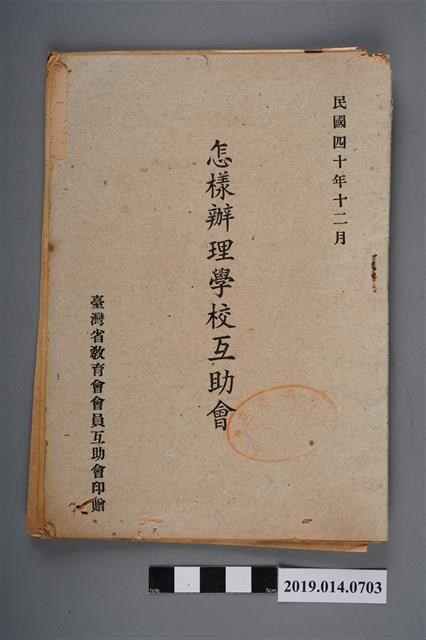 民國四十年十二月
怎樣辦理學校互助會
臺灣省教育會會員互助會印贈
2019.014.0703